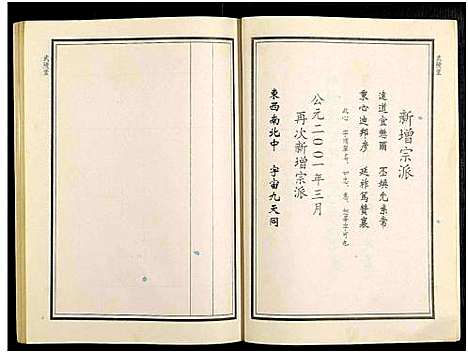 武陵堂
新增宗派
遠道宜懋爾 丕煥允彝常
秉心迪邦彦 廷祚篤贊襄
公元二〇〇一年三月
再次新增宗派
東西南北中 宇宙九天同
武陵堂